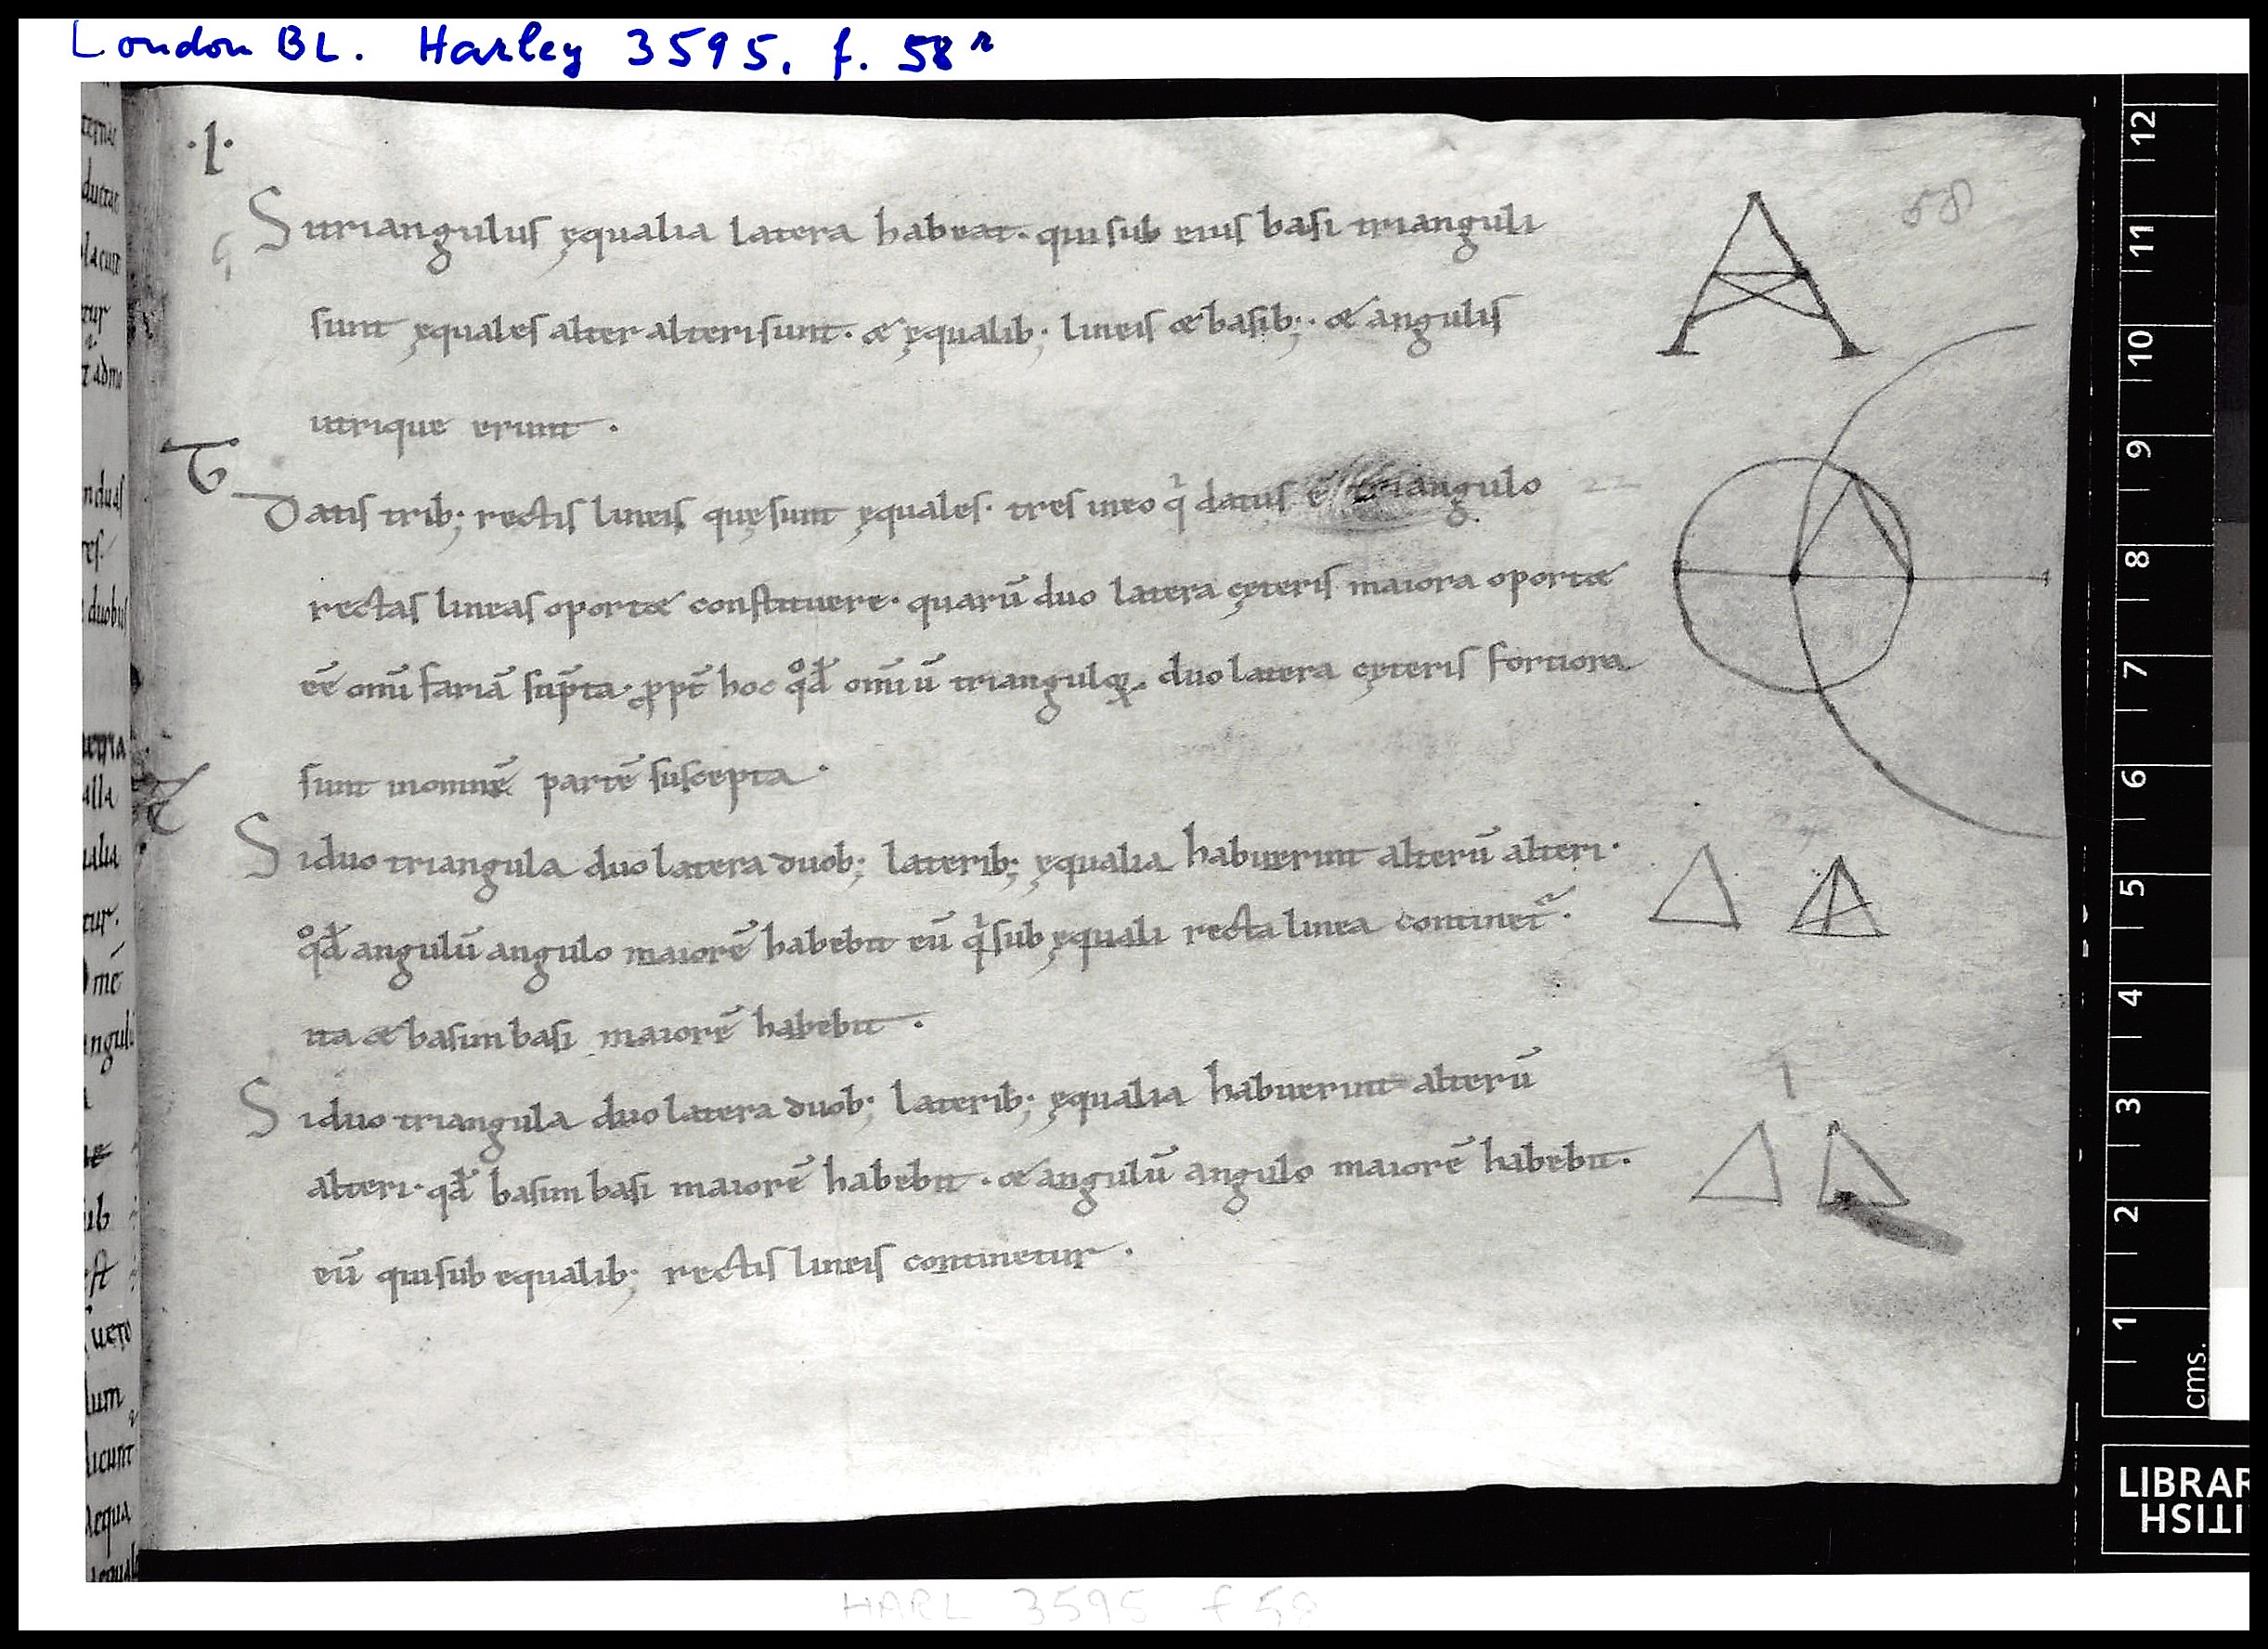 London BL. Harley 3595, f. 58r
·I·
58
Si triangulus ęqualia latera habeat· qui sub eius basi trianguli
sunt ęquales alter alteri sunt· & ęqualib; lineis & basib;· & angulis
utrique erunt ·
Datis trib; rectis lineis quę sunt ęquales· tres in eo qͥ datus ē triangulo
rectas lineas oport& constituere· quarū duo latera cęteris maiora oport&
eē omī fariā sūpta· ꝓpt̄ hoc qͦd omīū triangulꝝ duo latera cęteris fortiora
sunt inomnē partē suscepta ·
Si duo triangula duo latera duob; laterib; ęqualia habuerint alterū alteri·
qͦd angulū angulo maiorē habebit eū qͥ sub ęquali recta linea continet᷑·
ita & basim basi maiorē habebit ·
Si duo triangula duo latera duob; laterib; ęqualia habuerint alterū
alteri· qd̄ basim basi maiorē habebit · & angulū angulo maiorē habebit·
eū qui sub equalib; rectis lineis continetur ·
12
11
10
9
8
7
6
5
4
3
2
1
cms.
LIBRAR
ITISH
HARL 3595 f 58